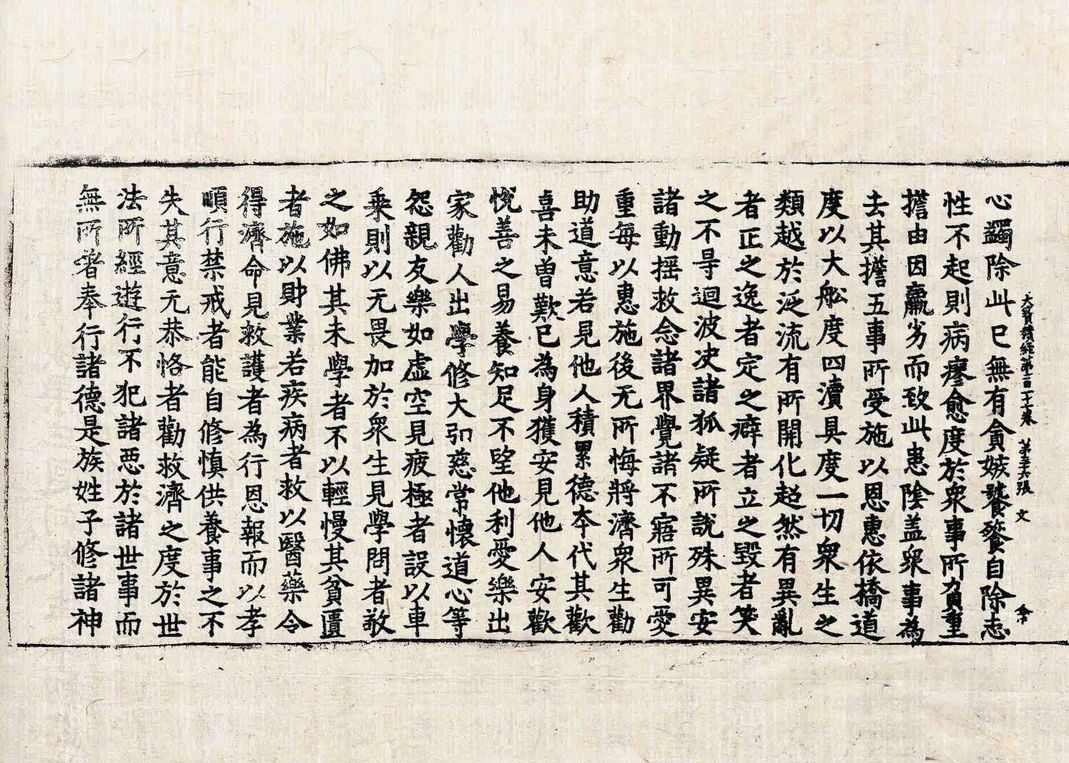 心蠲除此已無有貪嫉饕餮自除志
大寶積經第一百一十七卷 第三十六張 文
性不起則病瘳愈度於衆事所負重
擔由因羸劣而致此患陰盖衆事為
去其擔五事所受施以恩惠依橋道
度以大舩度四瀆具度一切衆生之
類越於泛流有所開化超然有異亂
者正之逸者定之癖者立之毀者笑
之不㝵迴波决諸狐疑所說殊異安
諸動揺救念諸界覺諸不寤所可愛
重每以惠施後无所悔將濟衆生勸
助道意若見他人積累德本代其歡
喜未曽歎已為身獲安見他人安歡
恱善之易養知足不望他利愛樂出
家勸人出學修大弘慈常懷道心等
怨親友樂如虛空見疲極者設以車
乘則以无畏加於衆生見學問者敬
之如佛其未學者不以輕慢其貧匱
者施以財業若疾病者救以醫藥令
得濟命見救護者為行恩報而以孝
順行禁戒者能自修慎供養事之不
失其意无恭恪者勸救濟之度於世
法所經遊行不犯諸惡於諸世事而
無所著奉行諸德是族姓子修諸神